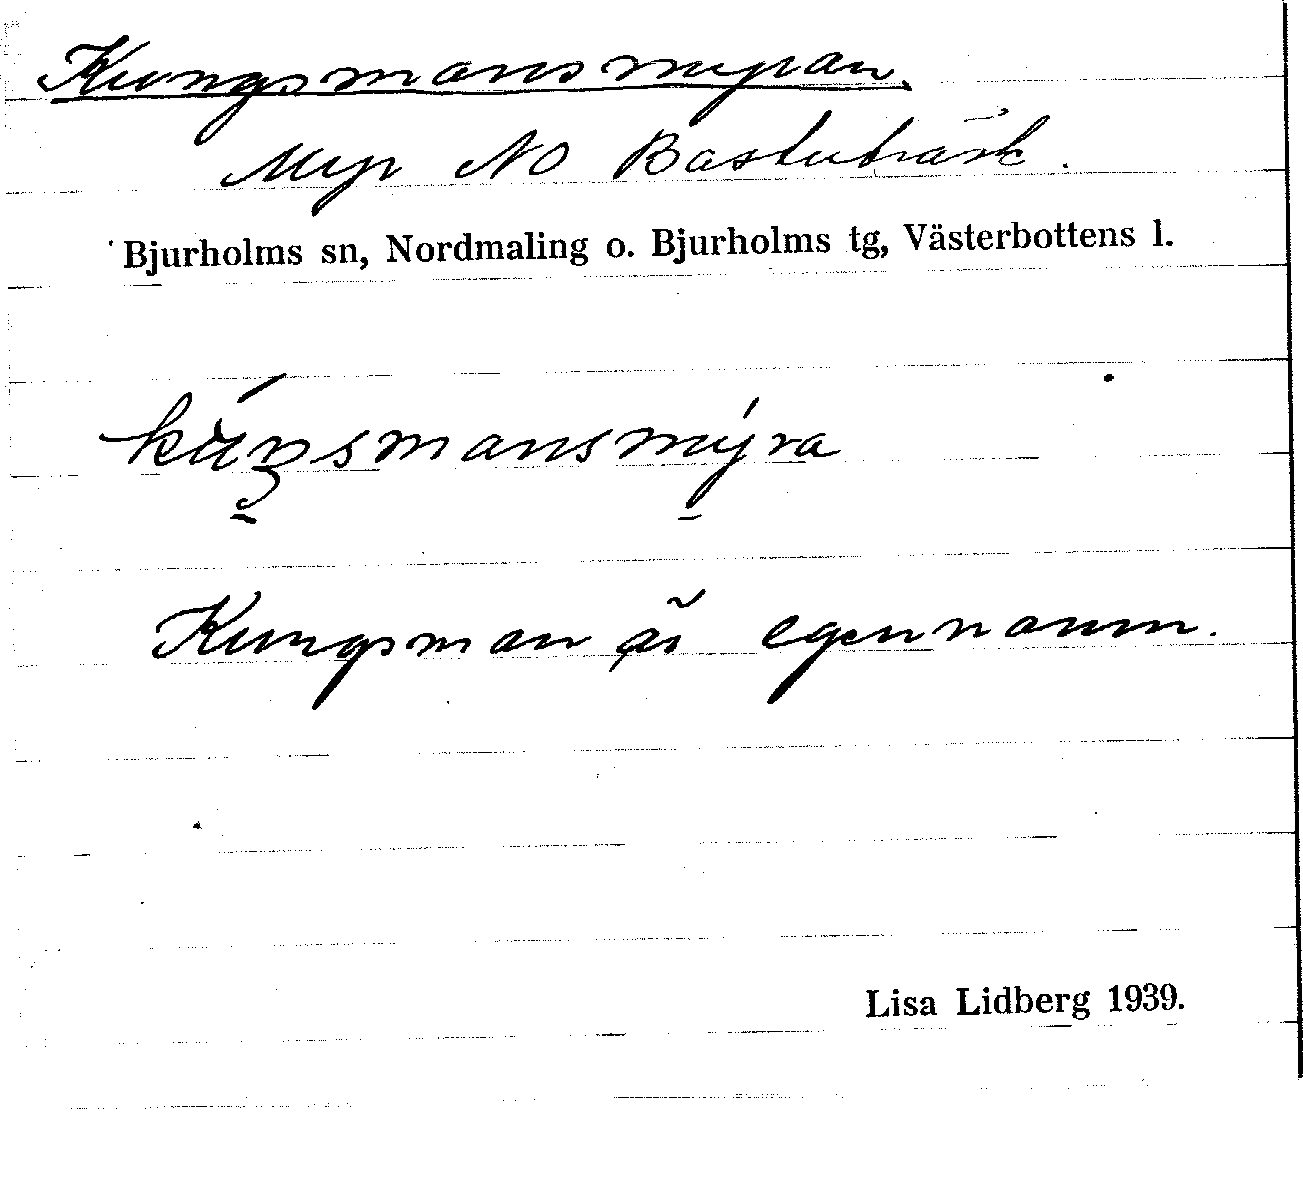 Kungsmansmyran.
Myr NO Bastuträsk.
Bjurholms sn, Nordmaling o. Bjurholms tg, Västerbottens l.
kúŋsmansmýra
Kungsman är egennamn.
Lisa Lidberg 1939.